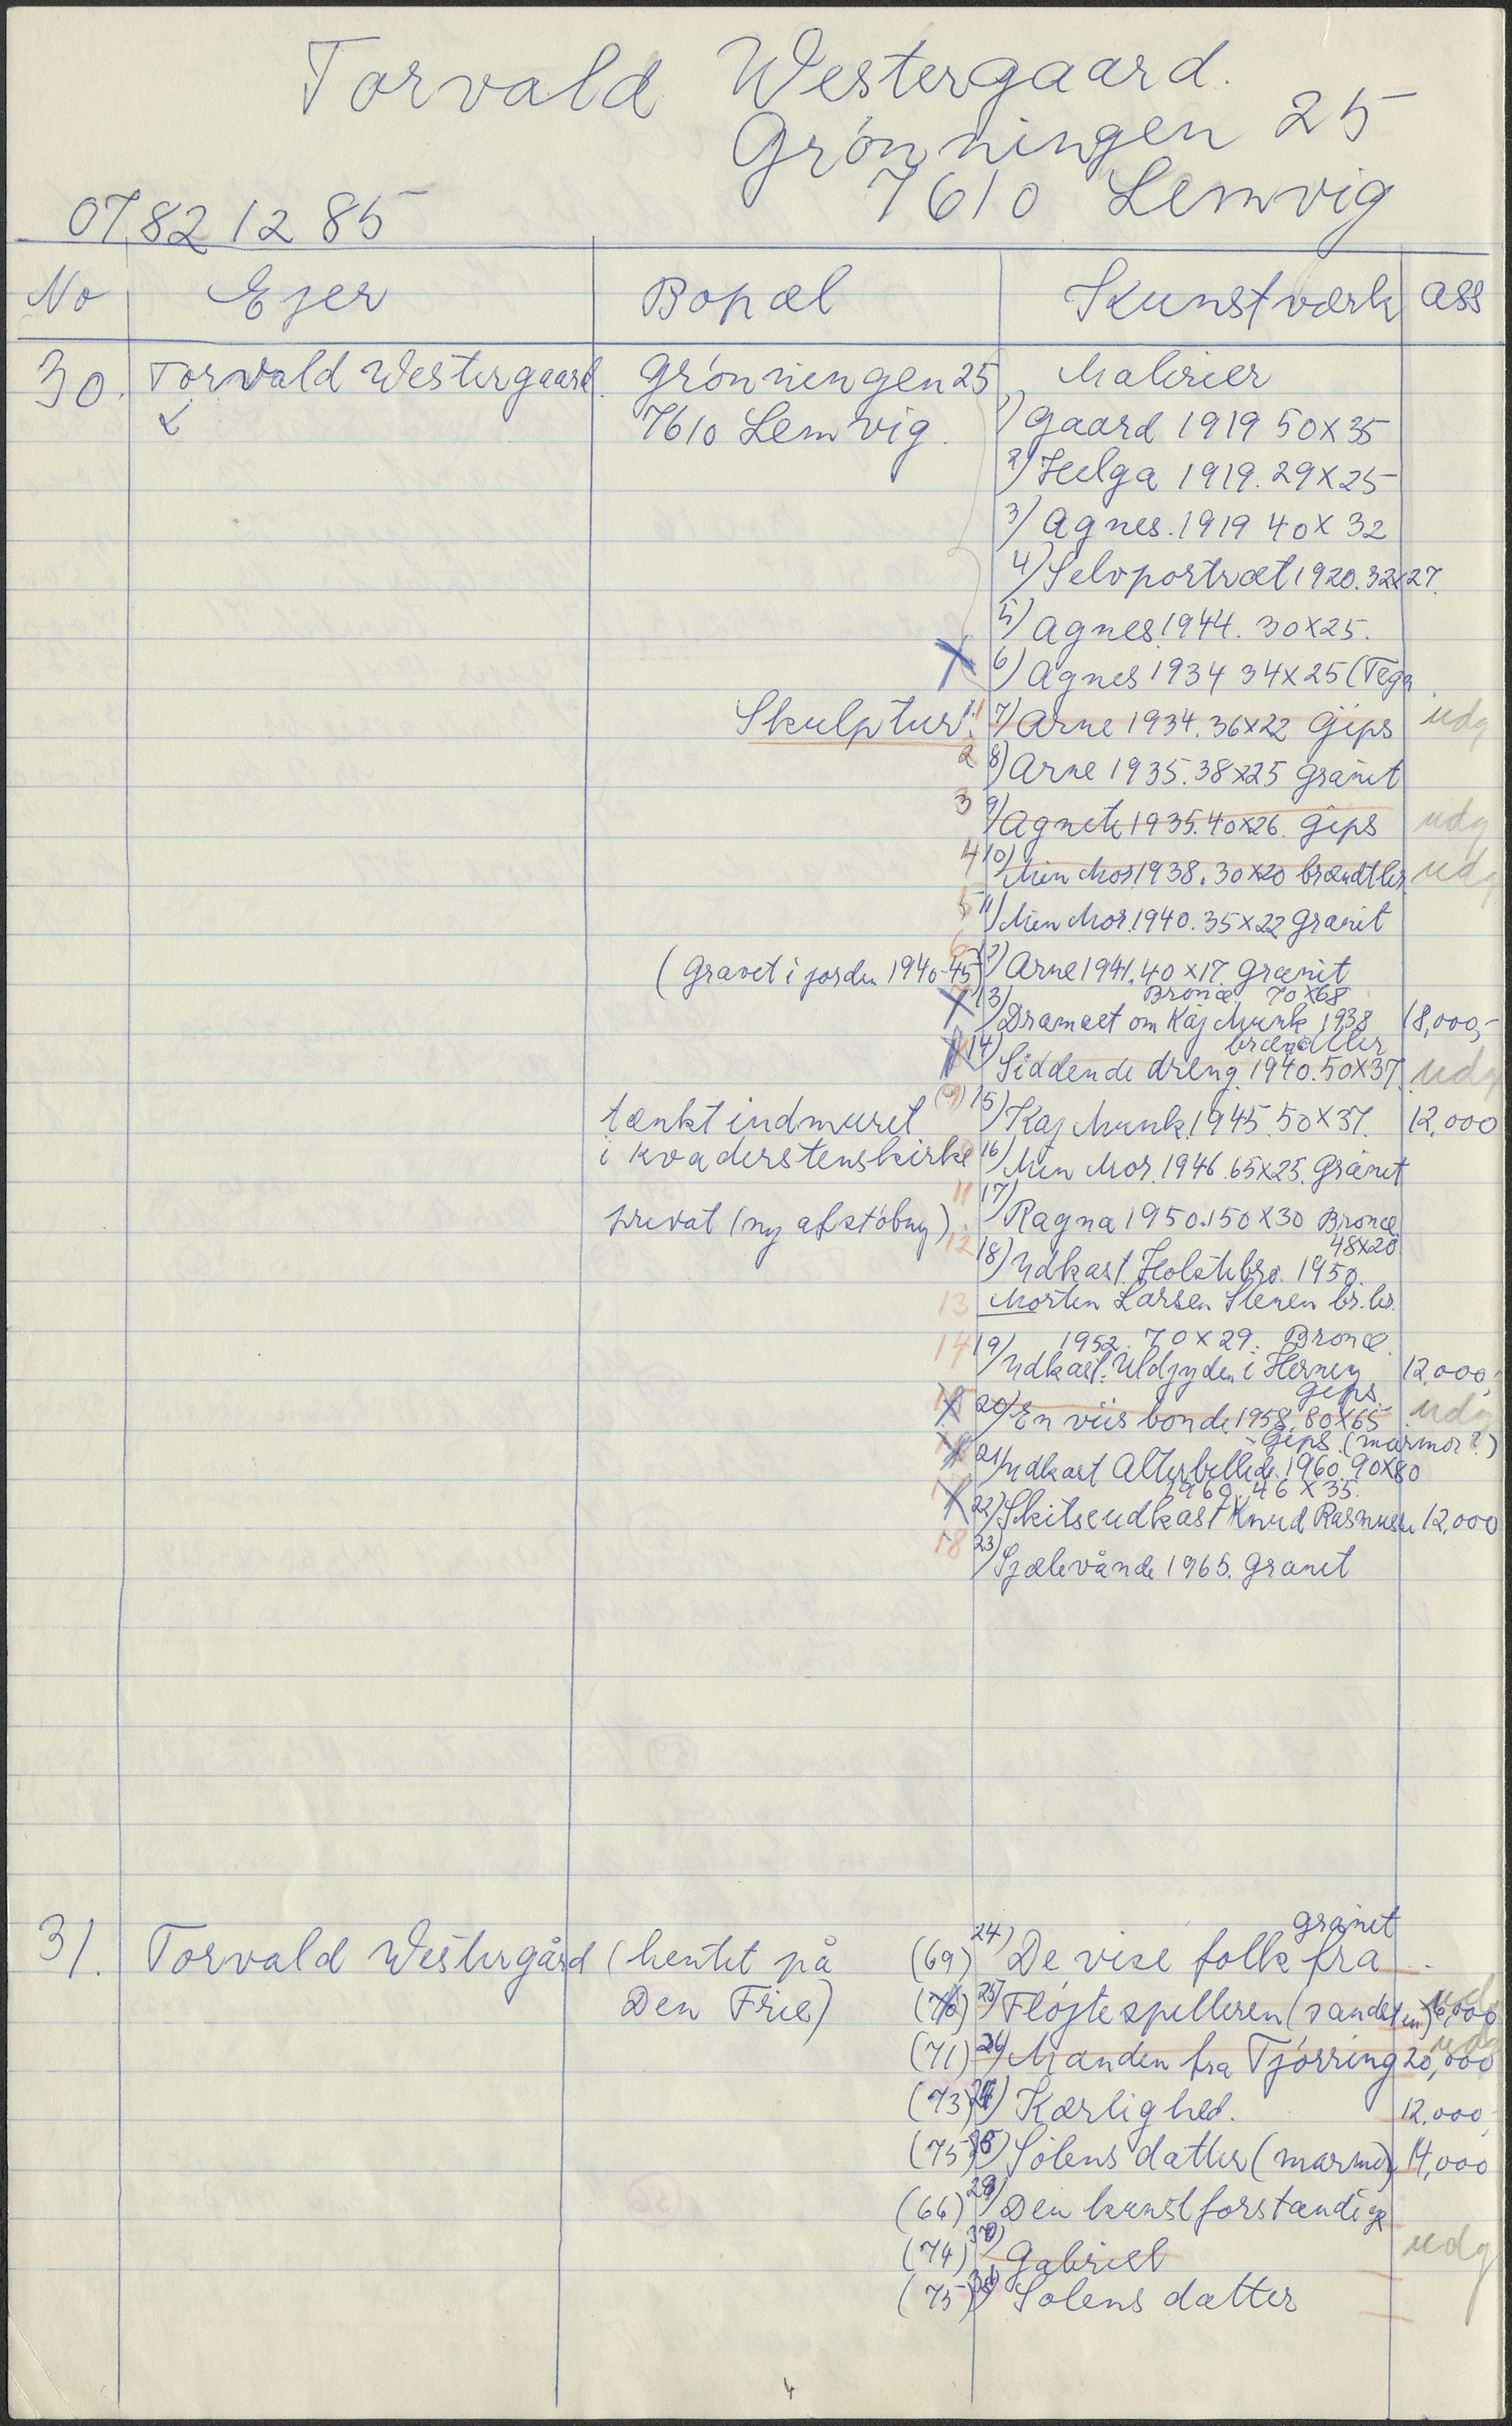 Torvald Westergaard.
Grónningen 25
7610 Lemvig
07821285
No Ejer Bopæl Kunstværk ass
30. Torvald Westergaard. Grónningen 25 Malerier
7610 Lemvig. 1) Gaard 1919 50x35
2) Helga 1919. 29x25
3) Agnes. 1919 40x32
4) Selvportræt 1920. 32x27.
5) Agnes. 1944. 30x25.
X 6) Agnes 1934 34x25 (Tegn
Skulptur: 1 7) Arne 1934. 36x22 Gips udg
2 8) Arne 1935. 38x25 granit
3 9) Agnete 1935. 40x26. gips udg
4 10) Min Mor. 1938. 30x20 brændtler. udg
5 11) Min Mor. 1940. 35x22 granit
6 12) Arne 1941. 40x17. granit
(Gravet i jorden 1940-45)
Bronce 70x68
X 13) Dramaet om Kaj Munk 1938 18,000,-
brændtler
14) Siddende dreng. 1940. 50x37. udg
tænkt indmuret (9) 15) Kaj Munk. 1945. 50x37. 12,000
i kvaderstenskirke 16) Min Mor. 1946. 65x25. granit
privat (ny afstóbng). 11 17) Ragna 1950. 150x30 Bronce
48x20
12 18) Udkast. Holstebro. 1950.
13 Morten Larsen Stenen br. ler.
1952. 70x29. Bronce.
14 19) Udkast: Uldjyden i Herning 12,000,-
gips.
X 20) En viis bonde 1958. 80x65 udg
Gips. (marmor?)
X 21) Udkast Alterbillede. 1960. 90x80
1960. 46x35.
X 22) Skitseudkast Knud Rasmussen 12,000
18 23) Sjælevånde 1965. granit
granit
31. Torvald Westergård (hentet på (69) 24) De vise folk fra
Den Frie) (70) 25) Fløjtespilleren (sandsten) 6,000 udg
(71) 26) Manden fra Tjórring 20,000 udg
(73) 27) Kærlighed. 12.000,-
(75) 28) Solens datter (marmor) 14,000
(66) 29) Den kunstforstandige
(74) 30) Gabriel udg
(75) 31) Solens datter
4